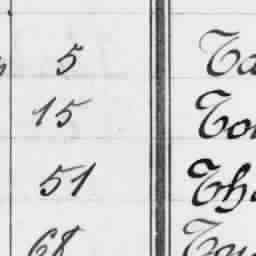 5 Ta
15 To
51 Th
68